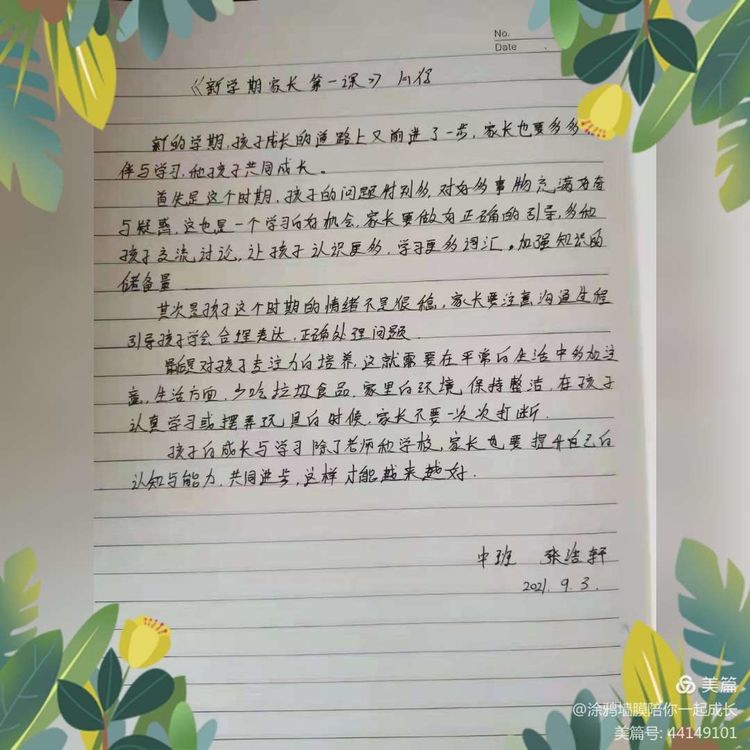 No.
Date
《新学期家长第一课》心得
新的学期,孩子成长的道路上又前进了一步,家长也要多多
伴与学习,和孩子共同成长。
首先是这个时期,孩子的问题特别多,对好多事物充满好奇
与疑惑,这也是一个学习的好机会,家长要做好正确的引导,多和
孩子交流讨论,让孩子认识更多,学习更多词汇。加强知识的
储备量
其次是孩子这个时期的情绪不是很稳,家长要注意沟通过程
引导孩子学会合理表达,正确处理问题.
最后是对孩子专注力的培养,这就需要在平常的生活中多加注
意,生活方面,少吃垃圾食品,家里的环境保持整洁,在孩子
认真学习或摆弄玩具的时候,家长不要一次次打断.
孩子的成长与学习除了老师和学校,家长也要提升自己的
认知与能力,共同进步,这样才能越来越好.
中班 张浩轩
2021.9.3.
美篇
@涂鸦墙膜陪你一起成长
美篇号:44149101